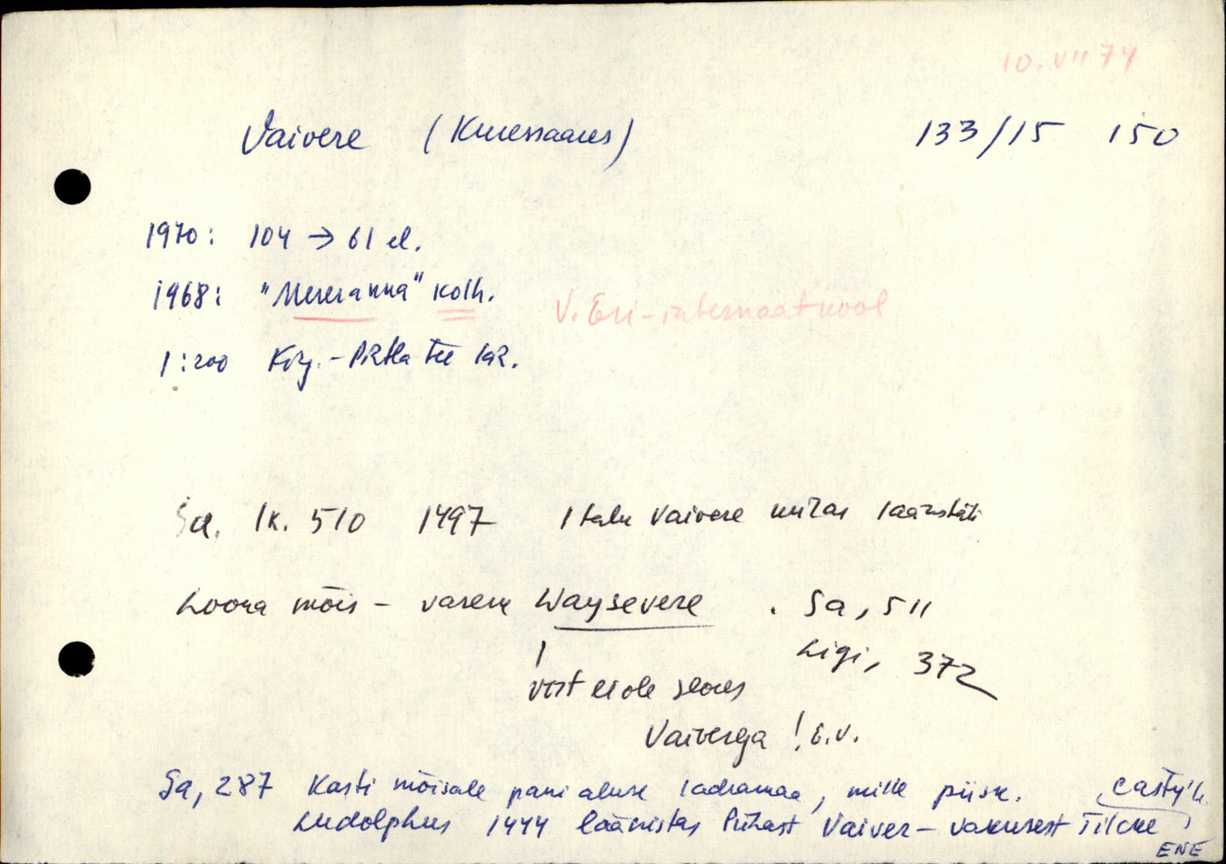 10. VII 74
Vaivere (Kuressaares) 133/15 150
1970: 104 → 61 el.
1968: "Mereranna" kolh.
V. Eri-internaatkool
1:200 Kng.-Pihtla tee
Sa. lk. 510 1497 1 talu Vaivere külas läänistati
Loona mõis - varem Waysevere . Sa, 511
Ligi, 372
vist ei ole seoses
Vaiverega ! E.V.
Sa, 287 Kasti mõisale pani aluse 1 adramaa, mille piisk.
Ludolphus 1444 läänistas Pühast Vaiver-vakusest Tilcke
ENE